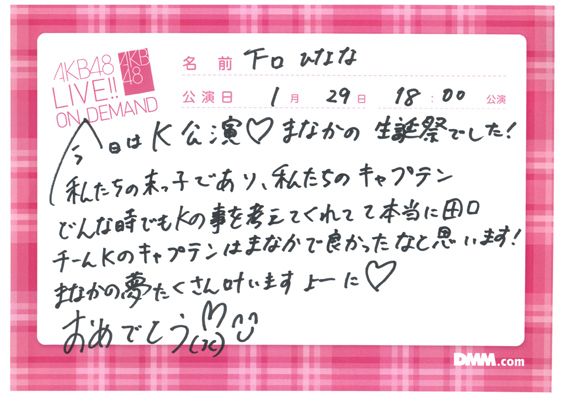 AKB48
LIVE!!
ON DEMAND
AKB
48
名前 下口ひなな
公演日 1月29日 18:00 公演
今日はK公演♡まなかの生誕祭でした!
私たちの末っ子であり、私たちのキャプテン
どんな時でもKの事を考えてくれてて本当に田口
チームKのキャプテンはまなかで良かったなと思います!
まなかの夢たくさん叶いますよーに♡
おめでとう
DMM.com